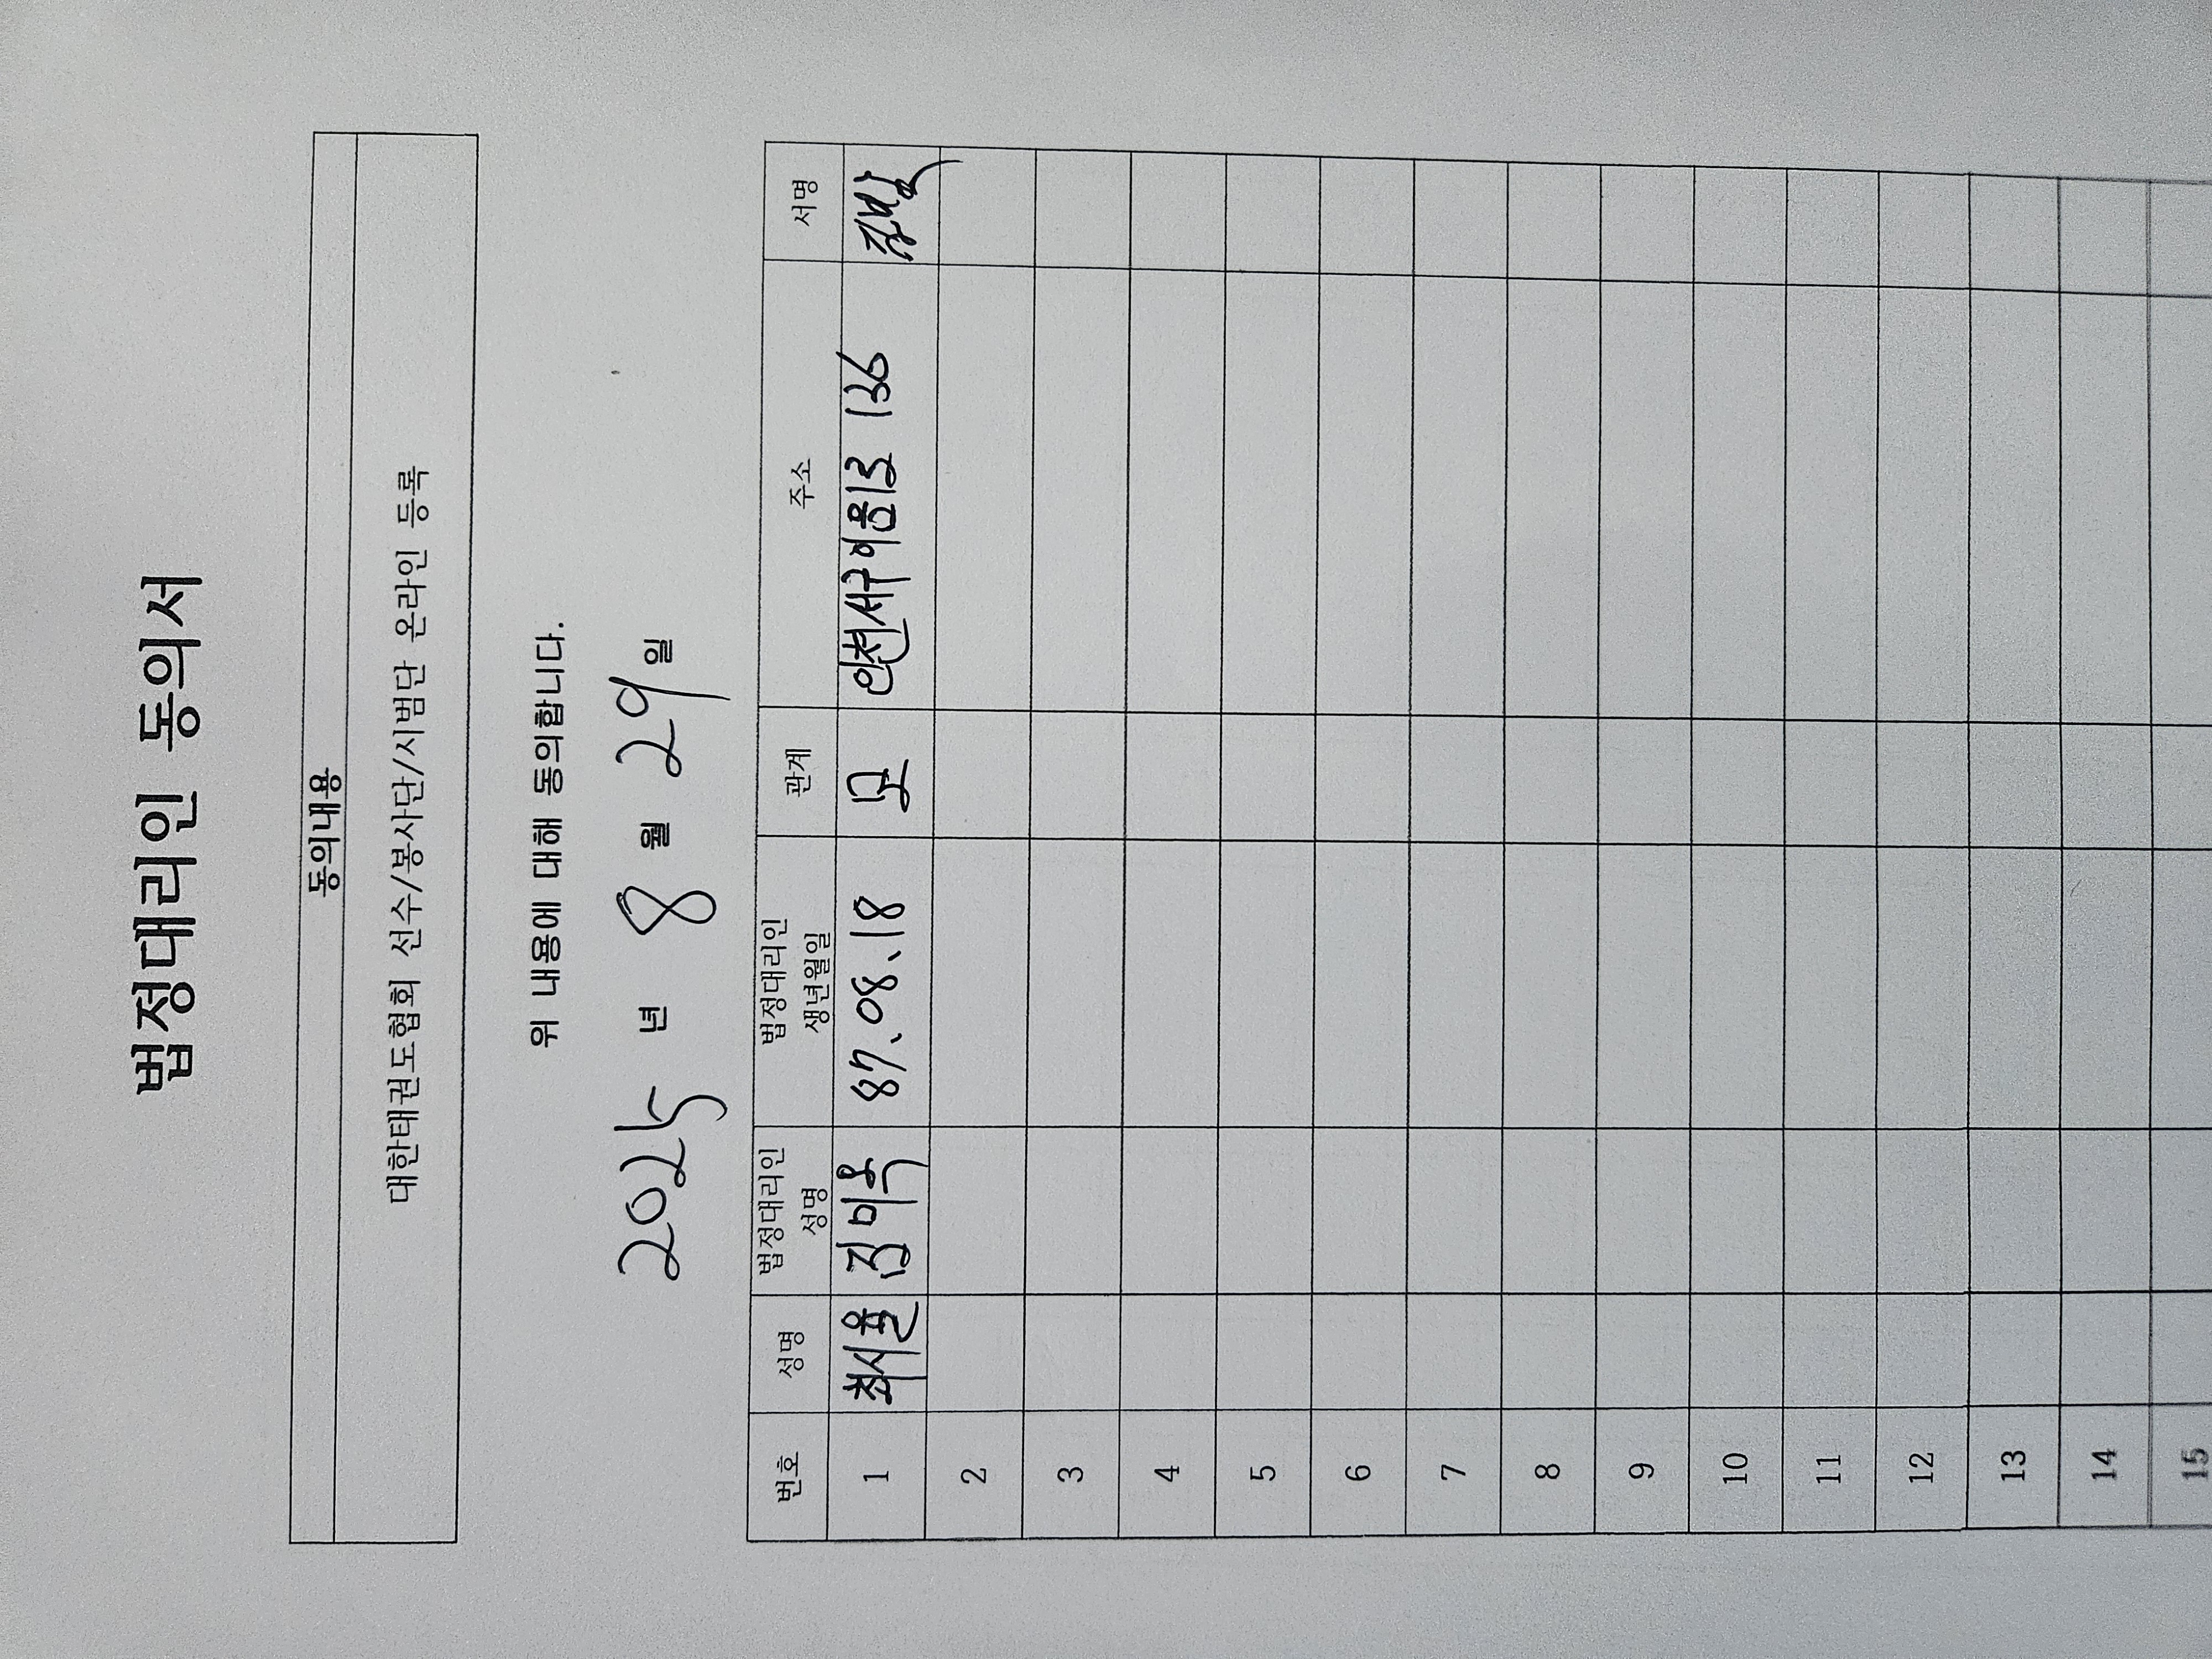 법정대리인 동의서
동의내용
대한태권도협회 선수/봉사단/시범단 온라인 등록
위 내용에 대해 동의합니다.
2025 년 8 월 29 일
번호 성명 법정대리인 성명 법정대리인 생년월일 관계 주소 서명
1 최서율 김미옥 87.08.18 모 인천 서구 이음1로 136
2
3
4
5
6
7
8
9
10
11
12
13
14
15